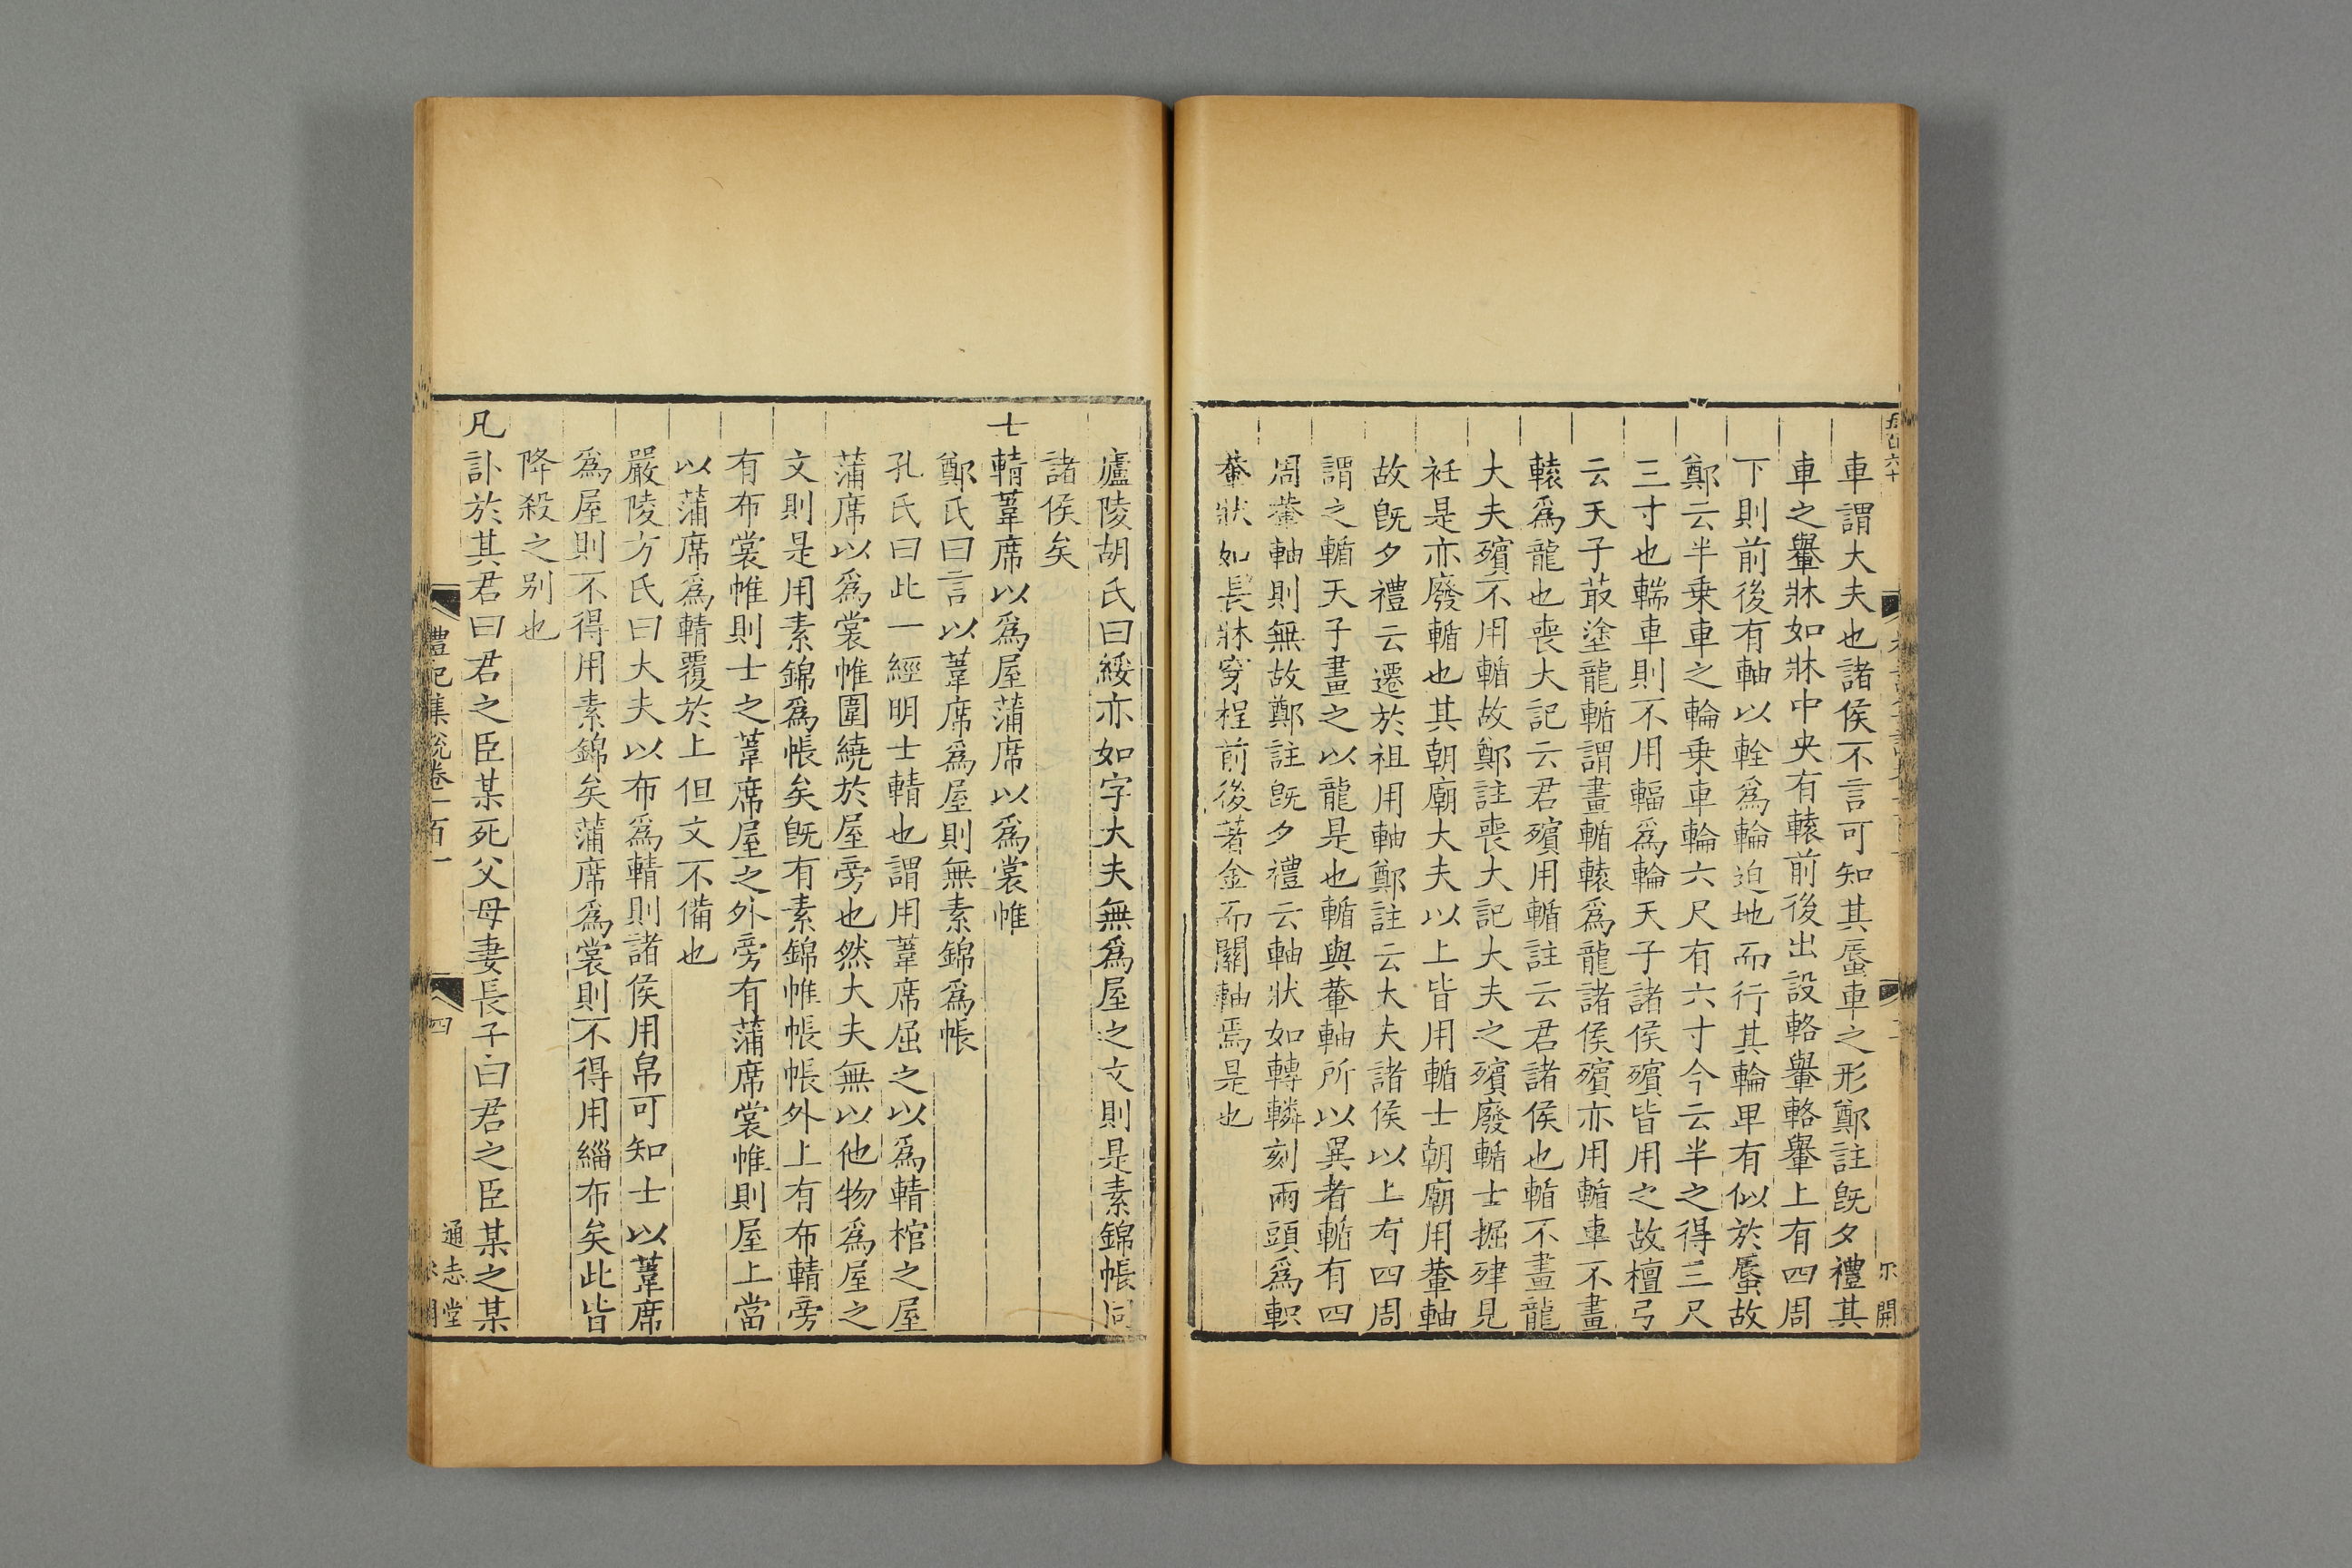 車謂大夫也諸侯不言可知其蜃車之形鄭註旣夕禮其
車之轝牀如牀中央有轅前後出設輅轝輅轝上有四周
下則前後有軸以輇爲輪迫地而行其輪卑有似於蜃故
鄭云半乗車之輪乗車輪六尺有六寸今云半之得三尺
三寸也輲車則不用輻爲輪天子諸侯殯皆用之故檀弓
云天子菆塗龍輴謂畫輴轅爲龍諸侯殯亦用輴車不畫
轅爲龍也喪大記云君殯用輴註云君諸侯也輴不畫龍
大夫殯不用輴故鄭註喪大記大夫之殯廢輴士掘肂見
衽是亦廢輴也其朝廟大夫以上皆用輴士朝廟用輁軸
故旣夕禮云遷於祖用軸鄭註云大夫諸侯以上有四周
謂之輴天子畫之以龍是也輴與輁軸所以異者輴有四
周輁軸則無故鄭註旣夕禮云軸狀如轉轔刻兩頭爲軹
輁狀如長牀穿桯前後著金而關軸焉是也
廬陵胡氏曰綏亦如字大夫無爲屋之文則是素錦帳同
諸侯矣
士輤葦席以爲屋蒲席以爲裳帷
鄭氏曰言以葦席爲屋則無素錦爲帳
孔氏曰此一經明士輤也謂用葦席屈之以爲輤棺之屋
蒲席以爲裳帷圍繞於屋旁也然大夫無以他物爲屋之
文則是用素錦爲帳矣旣有素錦帷帳帳外上有布輤旁
有布裳帷則士之葦席屋之外旁有蒲席裳帷則屋上當
以蒲席爲輤覆於上但文不備也
嚴陵方氏曰大夫以布爲輤則諸侯用帛可知士以葦席
爲屋則不得用素錦矣蒲席爲裳則不得用緇布矣此皆
降殺之别也
凡訃於其君曰君之臣某死父母妻長子曰君之臣某之某
禮記集說卷一百一
四
通志堂